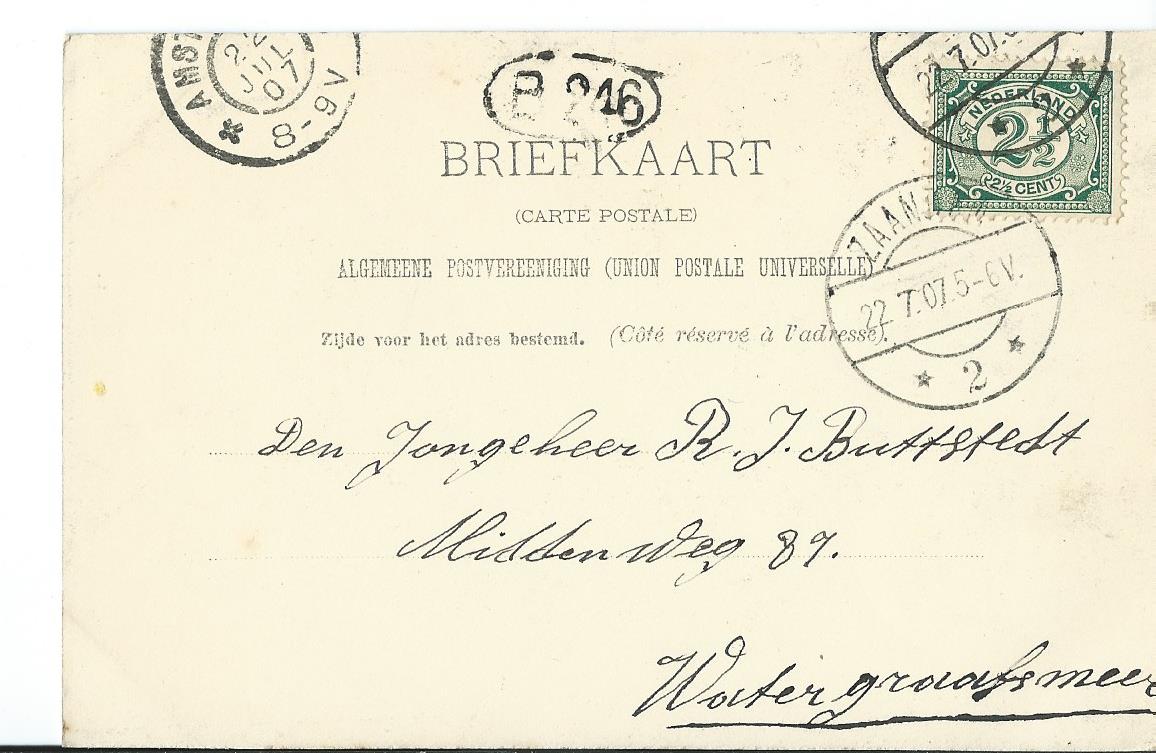 AMST
22
JUL
07
8-9V
B 246
22.7.07.5
NEDERLAND
2 1/2
2½ CENT
BRIEFKAART
(CARTE POSTALE)
ALGEMEENE POSTVEREENIGING (UNION POSTALE UNIVERSELLE)
Zijde voor het adres bestemd. (Côté réservé à l'adresse).
ZAANDAM
22.7.07.5-6V.
2
Den Jongeheer R. J. Buttstedt
Middenweg 87.
Watergraafsmeer